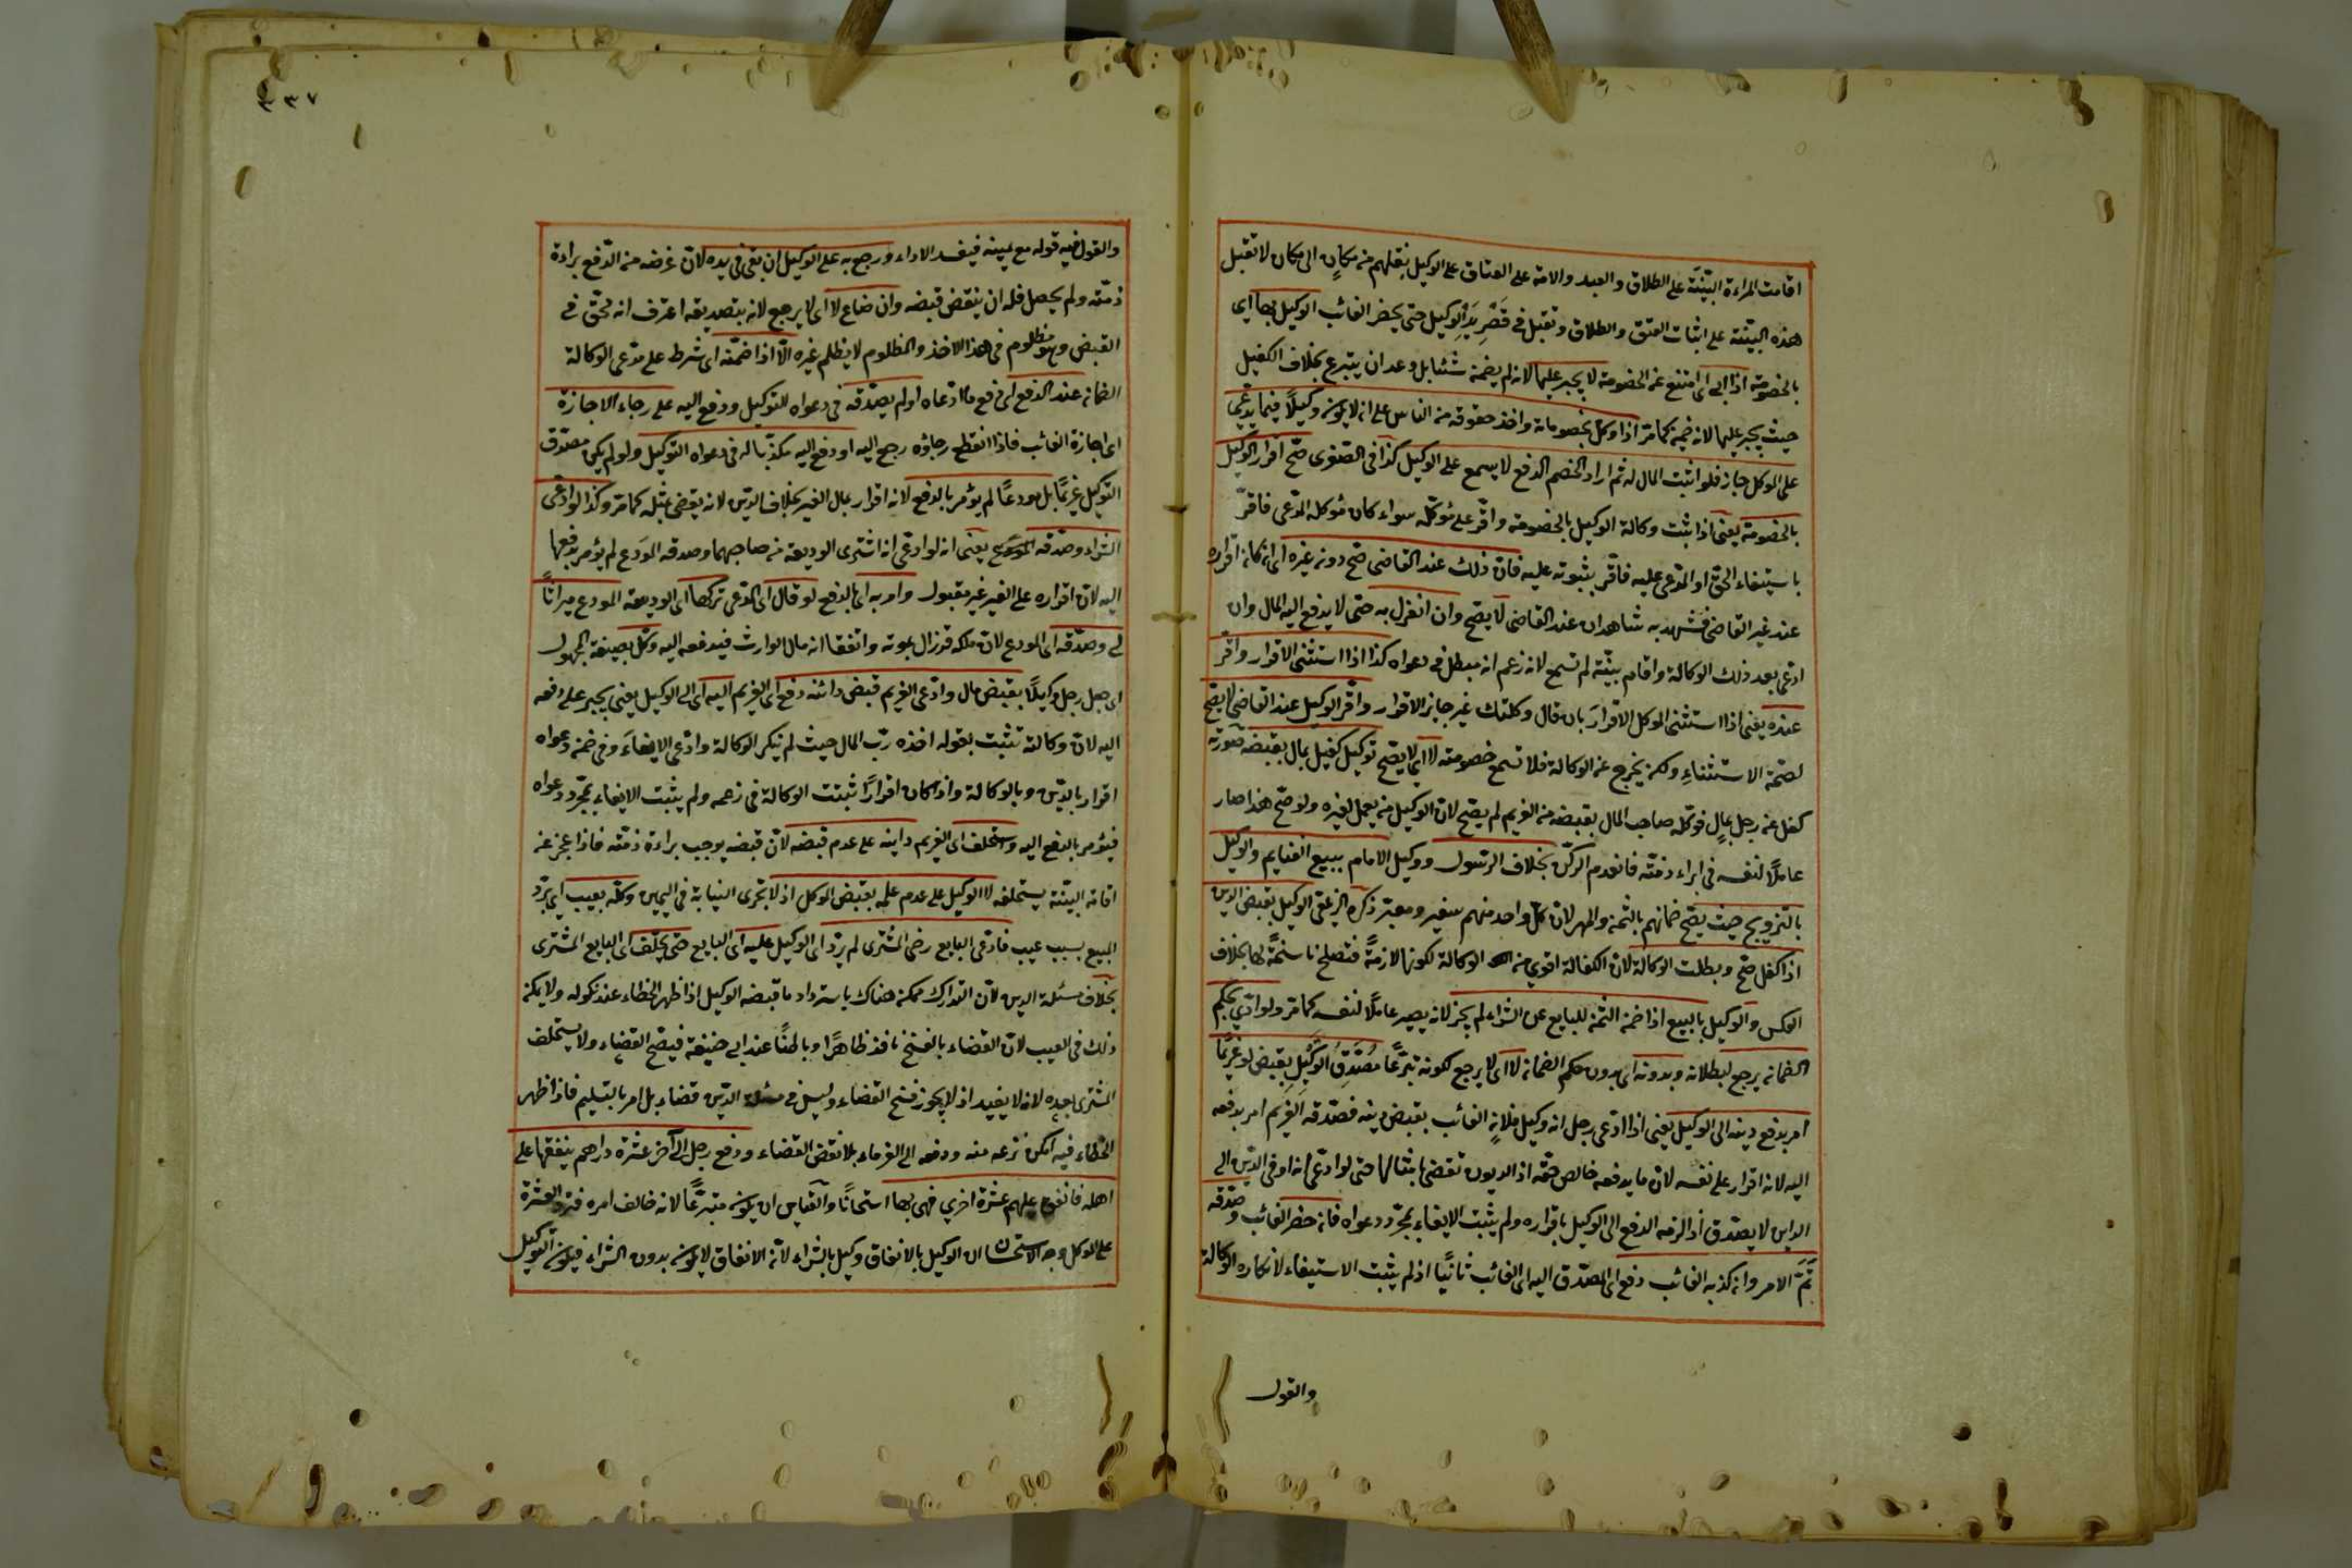 اقامت المراءة البيّنة على الطلاق والعبد والامة على العتاق على الوكيل بنقلهم من مكانٍ الى مكان لا تقبل
هذه البيّنة على اثبات العتق والطلاق وتقبل فى قَصْرِ يَدِ الوكيل حتى يحضر الغائب الوكيل بها اى
بالخصومة اذا ابى اى امتنع عن الخصومة لا يجبر عليها لانه لم يضمن شئا بل وعد ان يتبرع بخلاف الكفيل
حيث يجبر عليها لانه ضمن كما مرّ اذا وكل بخصوماته واخذ حقوقه من الناس على ان لا يكون وكيلاً فيما يدّعى
على الموكل جاز فلو اثبت المال له ثم اراد الخصم الدفع لا يسمع على الوكيل كذا فى الصغرى صحّ اقرار الوكيل
بالخصومة يعنى اذا ثبت وكالة الوكيل بالخصومة واقرّ على موكّله سواء كان موكله المدّعى فاقرّ
باستيفاء الحقّ او المدّعى عليه فاقرّ بثبوته عليه فان ذلك عند القاضى صحّ دون غيره اى ان كان اقراره
عند غير القاضى فشهد به شاهدان عند القاضى لا يصحّ وان انعزل به حتى لا يدفع اليه المال وان
ادعى بعد ذلك الوكالة واقام بيّنة لم تسمع لانه زعم انه مبطل فى دعواه كذا اذا استثنى الاقرار واقرّ
عنده يعنى اذا استثنى الموكل الاقرارَ بان قال وكلتك غير جايز الاقرار واقرّ الوكيل عند القاضى لا يصحّ
لصحّة الاستثناءِ ولكن يخرج عن الوكالة فلا تسمع خصومته لا اى لا يصحّ توكيل كفيل بمال بقبضه صورته
كفل عن رجل بمالٍ فوكّله صاحب المال بقبضه من الغريم لم يصحّ لان الوكيل من يعمل لغيره ولو صحّ هذا صار
عاملاً لنفسه فى ابراء ذمّته فانعدم الركن بخلاف الرسول ووكيل الامام ببيع الغنايم والوكيل
بالتزويج حيث يصحّ ضمانهم بالثمن والمهر لان كلّ واحد منهم سفير ومعبّر ذكره الزيلعى الوكيل بقبض الدين
اذا كفل صحّ وبطلت الوكالة لان الكفالة اقوى من الوكالة لكونها لازمةً فتصلح ناسخةً لها بخلاف
العكس والوكيل بالبيع اذا ضمن الثمن للبايع عن الشراء لم يجز لانه يصير عاملاً لنفسه كما مرّ ولو ادّى بحكم
الضمان يرجع لبطلانه وبدونه اى بدون حكم الضمان لا اى لا يرجع لكونه تبرّعًا مُصَدِّقُ الوَكِيلِ بِقَبض لو غريمًا
امر بدفع دينه الى الوكيل يعنى اذا ادّعى رجل انه وكيل فلانٍ الغائب بقبض دينه فصدّقه الغريم امر بدفعه
اليه لانه اقرار على نفسه لان ما يدفعه خالص حقّه اذ الديون تقضى بامثالها حتى لو ادّعى انه اوفى الدّين الى
الداين لا يصدّق اذ الزمه الدفع الى الوكيل باقراره ولم يثبت الايفاء بمجرّد دعواه فان حضر الغائب وصدّقه
تَمَّ الامر وان كذبه الغائب دفع اى المصدّق اليه اى الغائب ثانيًا اذ لم يثبت الاستيفاء لانكاره الوكالة
والقول
٣٣٧
والقول فيه قوله مع يمينه فيفسد الاداء ورجع به على الوكيل ان بقى فى يده لانّ غرضه من الدّفع براءة
ذمّته ولم يحصل فله ان ينقض قبضه وان ضاع لا اى لا يرجع لانه بتصديقه اعترف انه محّق فى
القبض وهو مظلوم فى هذا الاخذ والمظلوم لا يظلم غيره الّا اذا ضمّنه اى شرط على مدّعى الوكالة
الضمان عند الدفع اى دفع ما ادّعاه او لم يصدّقه فى دعواه للتوكيل ودفع اليه على رجاء الاجازة
اى اجازة الغائب فاذا انقطع رجاؤه رجع اليه او دفع اليه مكذّبا له فى دعواه التوكيل ولو لم يكن مصدّق
التوكيل غريمًا بل مودعًا لم يؤمر بالدفع لانه اقرار بمال الغير بخلاف الدّين لانه يقضى بمثله كما مرّ وكذا لو ادّعى
الشراء وصدّقه المودع يعنى انه لو ادعى انه اشترى الوديعة من صاحبها وصدقه المودَع لم يؤمر بدفعها
اليه لان اقراره على الغير غير مقبول وامر به اى بالدفع لو قال اى المدّعى تركها اى الوديعة المودع ميراثًا
لى وصدّقه اى المودع لان ملكه قد زال بموته واتفقا انه مال الوارث فيدفعه اليه وكّل بصيغة المجهول
اى جعل رجل وكيلاً بقبض مال وادّعى الغريم قبض دائنه دفع اى الغريم اليه اى الى الوكيل يعنى يجبر على دفعه
اليه لان وكالته تثبت بقوله اخذه ربّ المال حيث لم ينكر الوكالة وادّعى الايفاءَ وفى ضمن دعواه
اقرار بالدّين وبالوكالة واذا كان اقرارًا ثبتت الوكالة فى زعمه ولم يثبت الايفاء بمجرّد دعواه
فيؤمر بالدفع اليه واستحلف اى الغريم داينه على عدم قبضه لانّ قبضه يوجب براءة ذمّته فاذا عجز عن
اقامة البيّنة يستحلفه لا الوكيل على عدم علمه بقبض الموكل اذ لا تجرى النيابة فى اليمين وكّله بعيب اى بردّ
المبيع بسبب عيب فادّعى البايع رضى المشترى لم يردّ اى الوكيل عليه اى البايع حتى يحلف اى البايع المشترى
بخلاف مسئلة الدين لان التدارك ممكن هناك باسترداد ما قبضه الوكيل اذا ظهر الخطاء عند نكوله ولا يمكن
ذلك فى العيب لان القضاء بالفسخ نافذ ظاهرًا وباطنًا عند ابى حنيفة فيصحّ القضاء ولا يستحلف
المشترى بعده لانه لا يفيد اذ لا يجوز فسخ القضاء وليس فى مسئلة الدّين قضاء بل امر بالتسليم فاذا ظهر
الخطاء فيه امكن نزعه منه ودفعه الى الغرماء بلا نقض القضاء ودفع رجل الى آخر عشرة دراهم ينفقها على
اهله فانفق عليهم عشرة اخرى فهى بها استحسانًا والقياس ان يكون متبرّعًا لانه خالف امره فتردّ العشرة
على الموكل وجه الاستحسان ان الوكيل بالانفاق وكيل بالشراء لانّ الانفاق لا يكون بدون الشراء فيكون التوكيل